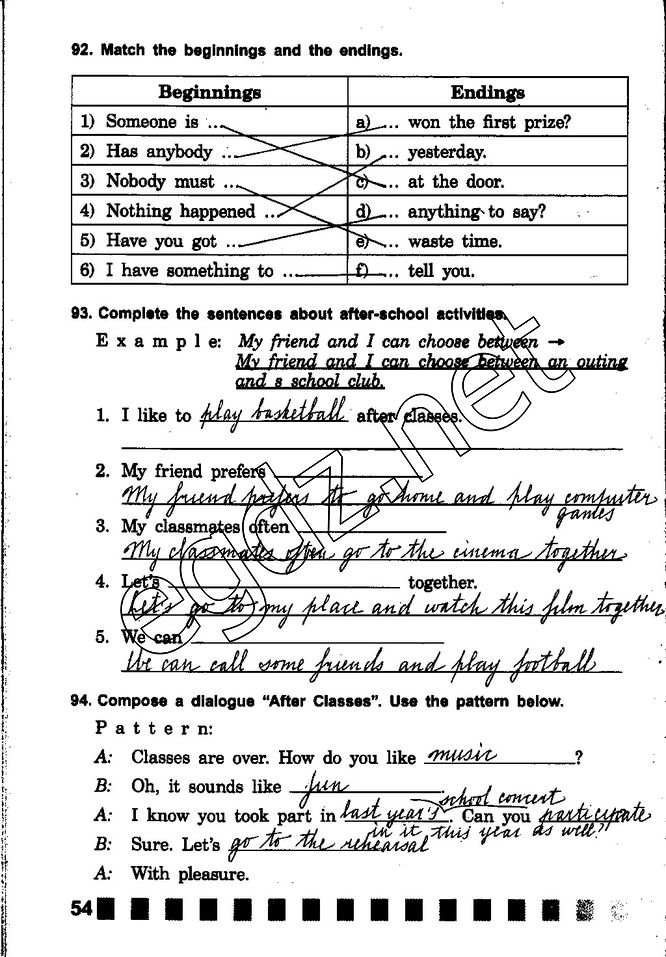 92. Match the beginnings and the endings.
Beginnings Endings
1) Someone is ... a) ... won the first prize?
2) Has anybody ... b) ... yesterday.
3) Nobody must ... c) ... at the door.
4) Nothing happened ... d) ... anything to say?
5) Have you got ... e) ... waste time.
6) I have something to ... f) ... tell you.
93. Complete the sentences about after-school activities.
Example: My friend and I can choose between →
My friend and I can choose between an outing
and s school club.
1. I like to play basketball after classes.
2. My friend prefers
My friend prefers to go home and play computer
games
3. My classmates often
My classmates often go to the cinema together
4. Let's together.
Let's go to my place and watch this film together
5. We can
We can call some friends and play football
94. Compose a dialogue "After Classes". Use the pattern below.
Pattern:
A: Classes are over. How do you like music ?
B: Oh, it sounds like fun .
school concert
A: I know you took part in last year's . Can you participate
in it this year as well?
B: Sure. Let's go to the rehearsal
A: With pleasure.
54
egdz.net